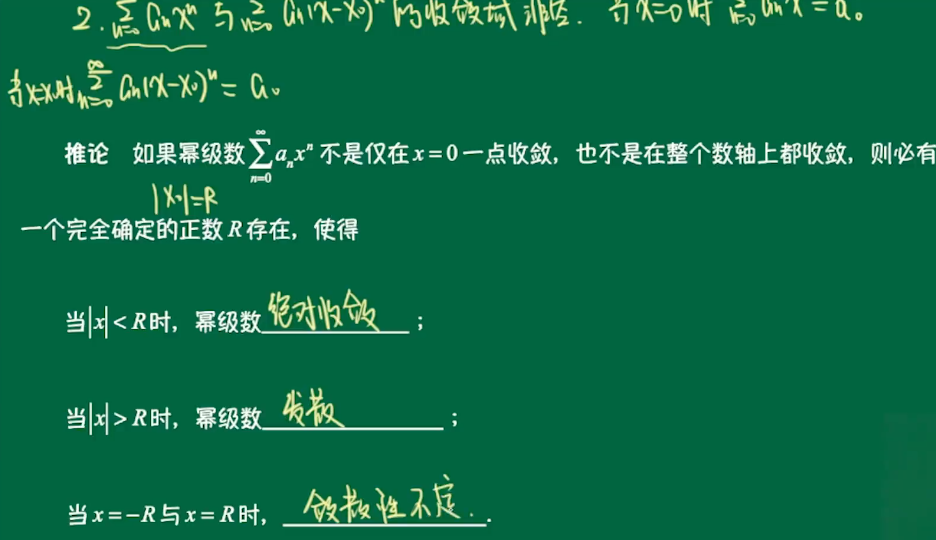 2. $\sum_{n=0}^{\infty} a_n x^n$ 与 $\sum_{n=0}^{\infty} a_n (x-x_0)^n$ 的收敛域非空. 当 x=0 时 $\sum_{n=0}^{\infty} a_n x^n = a_0$
当 x=x_0 时 $\sum_{n=0}^{\infty} a_n (x-x_0)^n = a_0$
推论 如果幂级数 $\sum_{n=0}^{\infty} a_n x^n$ 不是仅在 x = 0 一点收敛，也不是在整个数轴上都收敛，则必有
|x_0|=R
一个完全确定的正数 R 存在，使得
当|x| < R时，幂级数 绝对收敛 ；
当|x| > R时，幂级数 发散 ；
当 x = −R 与 x = R 时， 敛散性不定. .